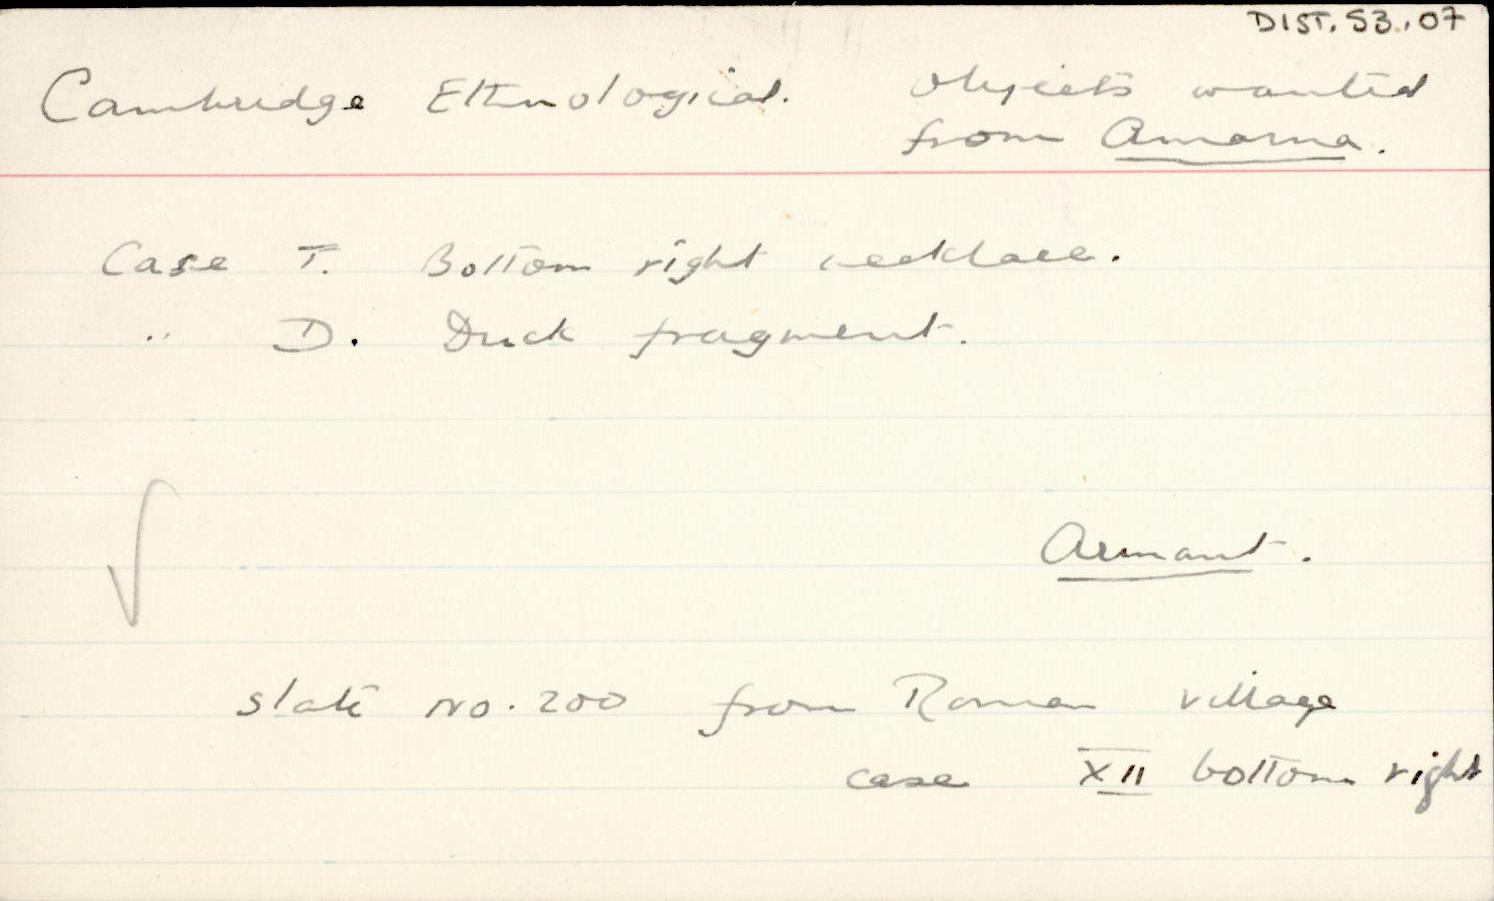 DIST.53.07
Cambridge Ethnological. Objects wanted
from Amarna.
Case T. Bottom right necklace.
" D. Duck fragment.
Armant.
slate no. 200 from Roman village
case XII bottom right